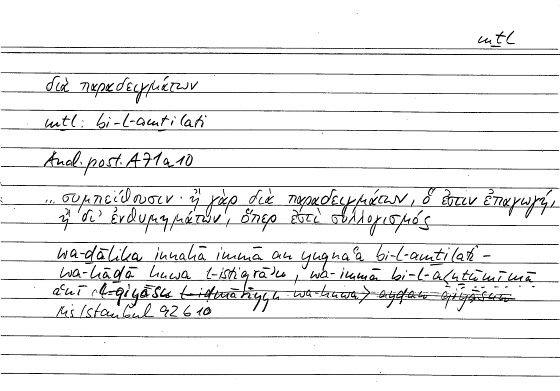 mṯl
διὰ παραδειγμάτων
mṯl: bi-l-amṯilati
Anal. post. A 71 a 10
... συμπείθουσιν· ἢ γὰρ διὰ παραδειγμάτων, ὅ ἐστιν ἐπαγωγή,
ἢ δι’ ἐνθυμημάτων, ὅπερ ἐστὶ συλλογισμός
wa-ḏālika innahā immā an yuqnaʿa bi-l-amṯilati –
wa-hāḏā huwa l-istiqrāʾu, wa-immā bi-l-
l-qiyāsu wa-huwa> ayḍan qiyāsun
Ms Istanbul 926 10